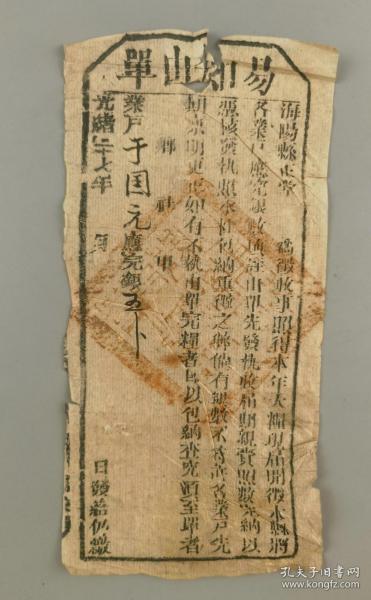 易知由單
海陽縣正堂 為徵收事照得本年大糧現屆開徵本縣將
各業戶應完銀數填註由單先發執收屆期親賫照數完納以
憑核發執照永杜包納重徵之弊倘有銀數不符許各業戶先
期稟明更正如有不執由單完糧者即以包納查究須至單者
鄉 社 甲
業戶于国元應完銀五卜
光緒二十七年 月 日發給仍繳
孔夫子旧书网
www.kongfz.com